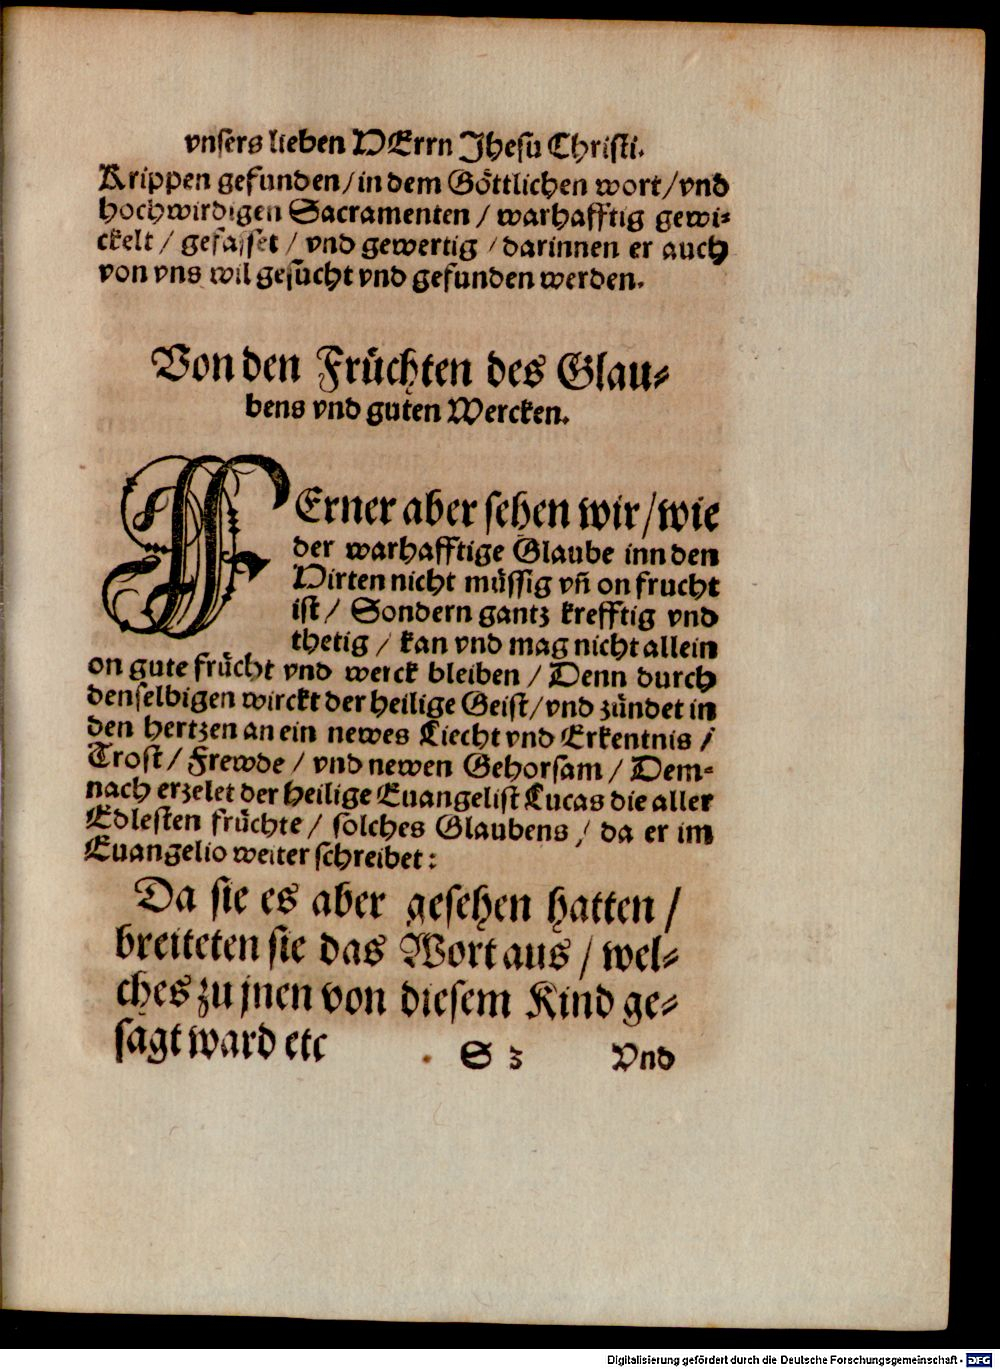 vnsers lieben HErrn Jhesu Christi.
Krippen gefunden / in dem Göttlichen wort / vnd
hochwirdigen Sacramenten / warhafftig gewi-
ckelt / gefasset / vnd gewertig / darinnen er auch
von vns wil gesucht vnd gefunden werden.
Von den Früchten des Glau-
bens vnd guten Wercken.
FErner aber sehen wir / wie
der warhafftige Glaube inn den
Hirten nicht müssig vñ on frucht
ist / Sondern gantz krefftig vnd
thetig / kan vnd mag nicht allein
on gute frücht vnd werck bleiben / Denn durch
denselbigen wirckt der heilige Geist / vnd zündet in
den hertzen an ein newes Liecht vnd Erkentnis /
Trost / Frewde / vnd newen Gehorsam / Dem-
nach erzelet der heilige Euangelist Lucas die aller
Edlesten früchte / solches Glaubens / da er im
Euangelio weiter schreibet:
Da sie es aber gesehen hatten /
breiteten sie das Wort aus / wel-
ches zu jnen von diesem Kind ge-
sagt ward etc
S 3 Vnd
Digitalisierung gefördert durch die Deutsche Forschungsgemeinschaft - DFG